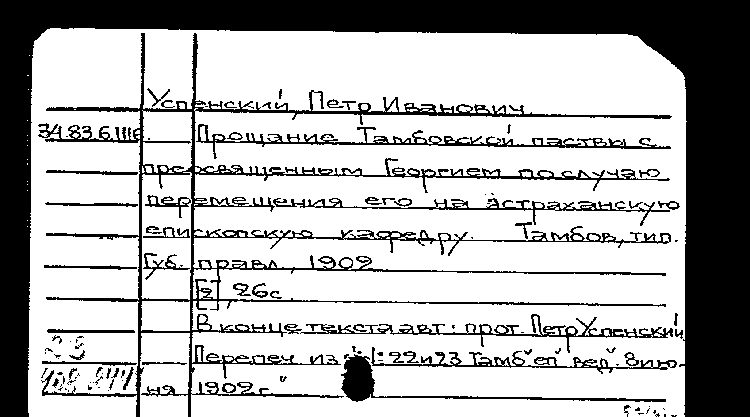 Успенский, Петр Иванович.
34.83.6.1116. Прощание Тамбовской паствы с
преосвященным Георгием по случаю
перемещения его на астраханскую
епископскую кафедру. Тамбов, тип.
Губ. правл., 1902
[2], 26с.
В конце текста авт: прот. Петр Успенский
Перепеч из 22и23 Тамб "еп" вед". 8ию-
ня 1902г."